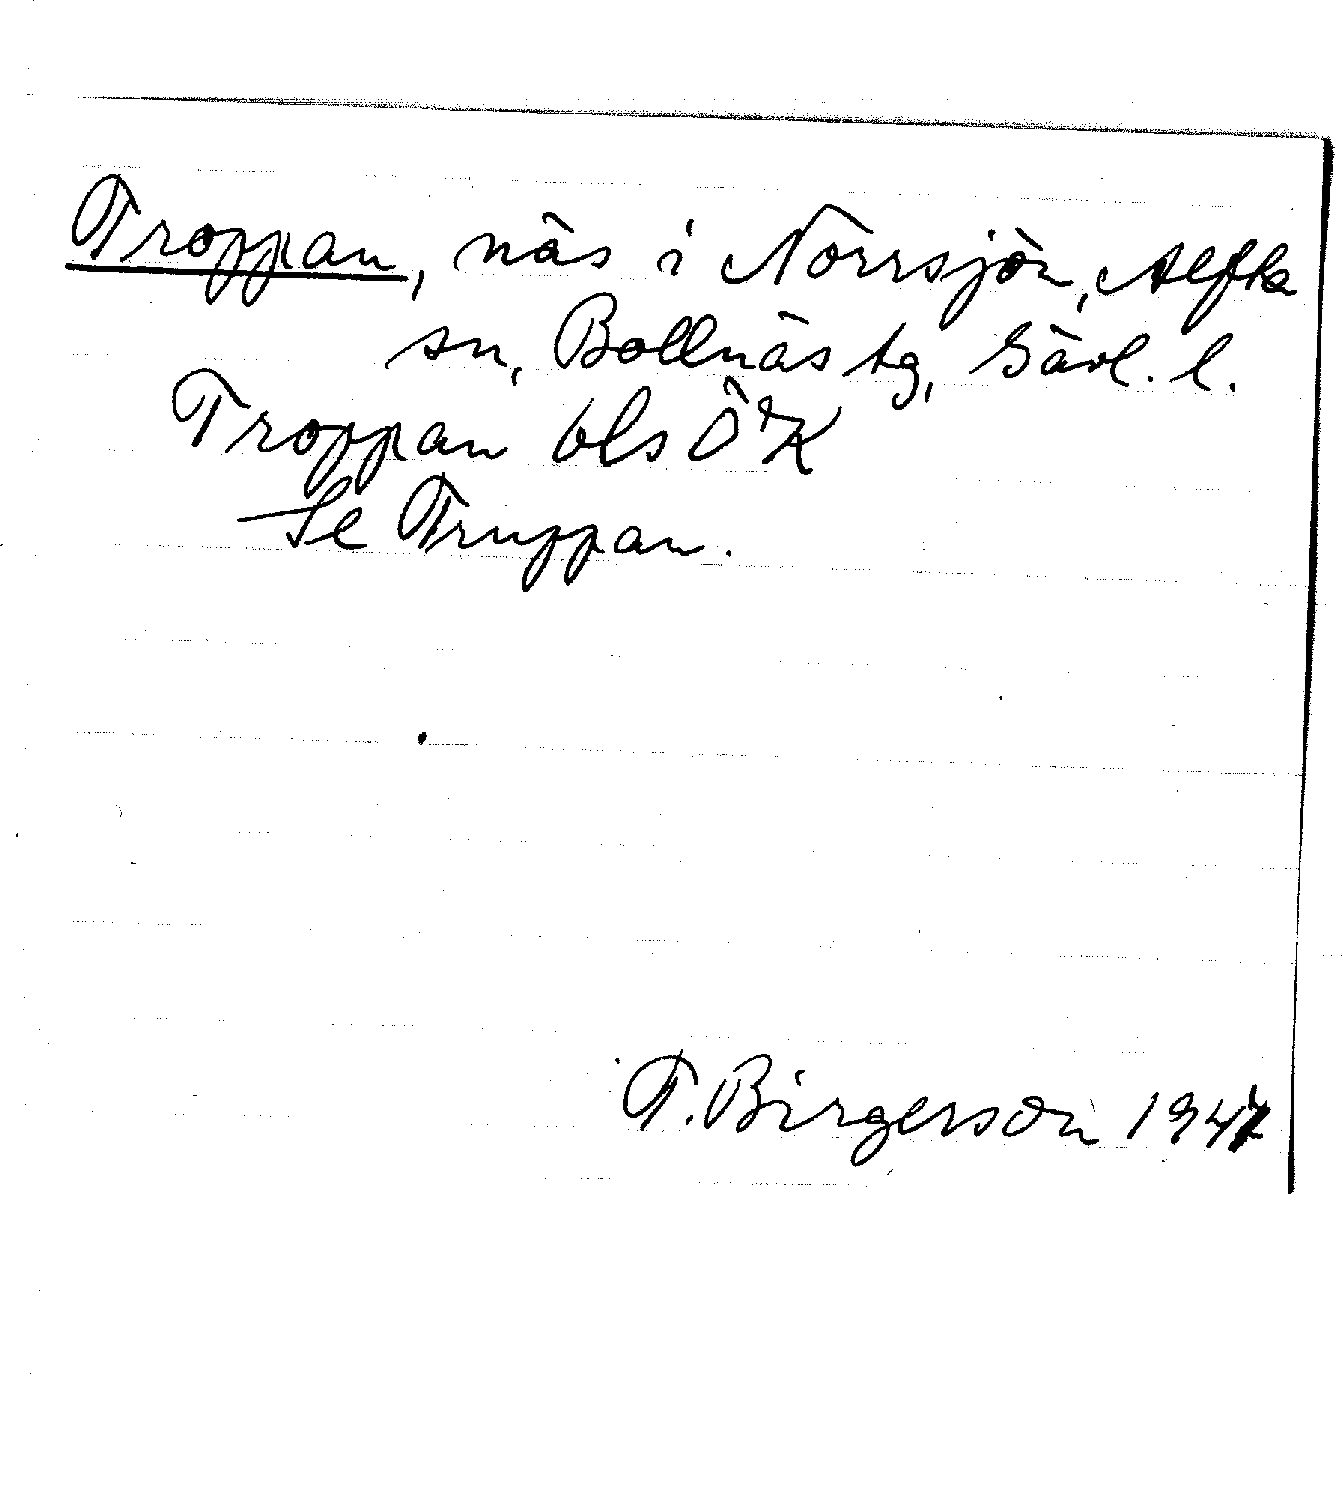 Troppan, näs i Norrsjön, Alfta
sn, Bollnäs tg, Gävl. l.
Troppan bls ÖK
Se Truppan.
T. Birgerson 1947